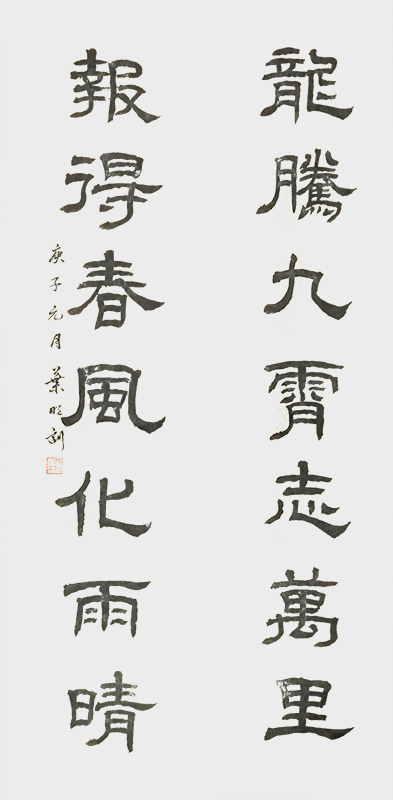 龍騰九霄志萬里
報得春風化雨晴
庚子元月葉明